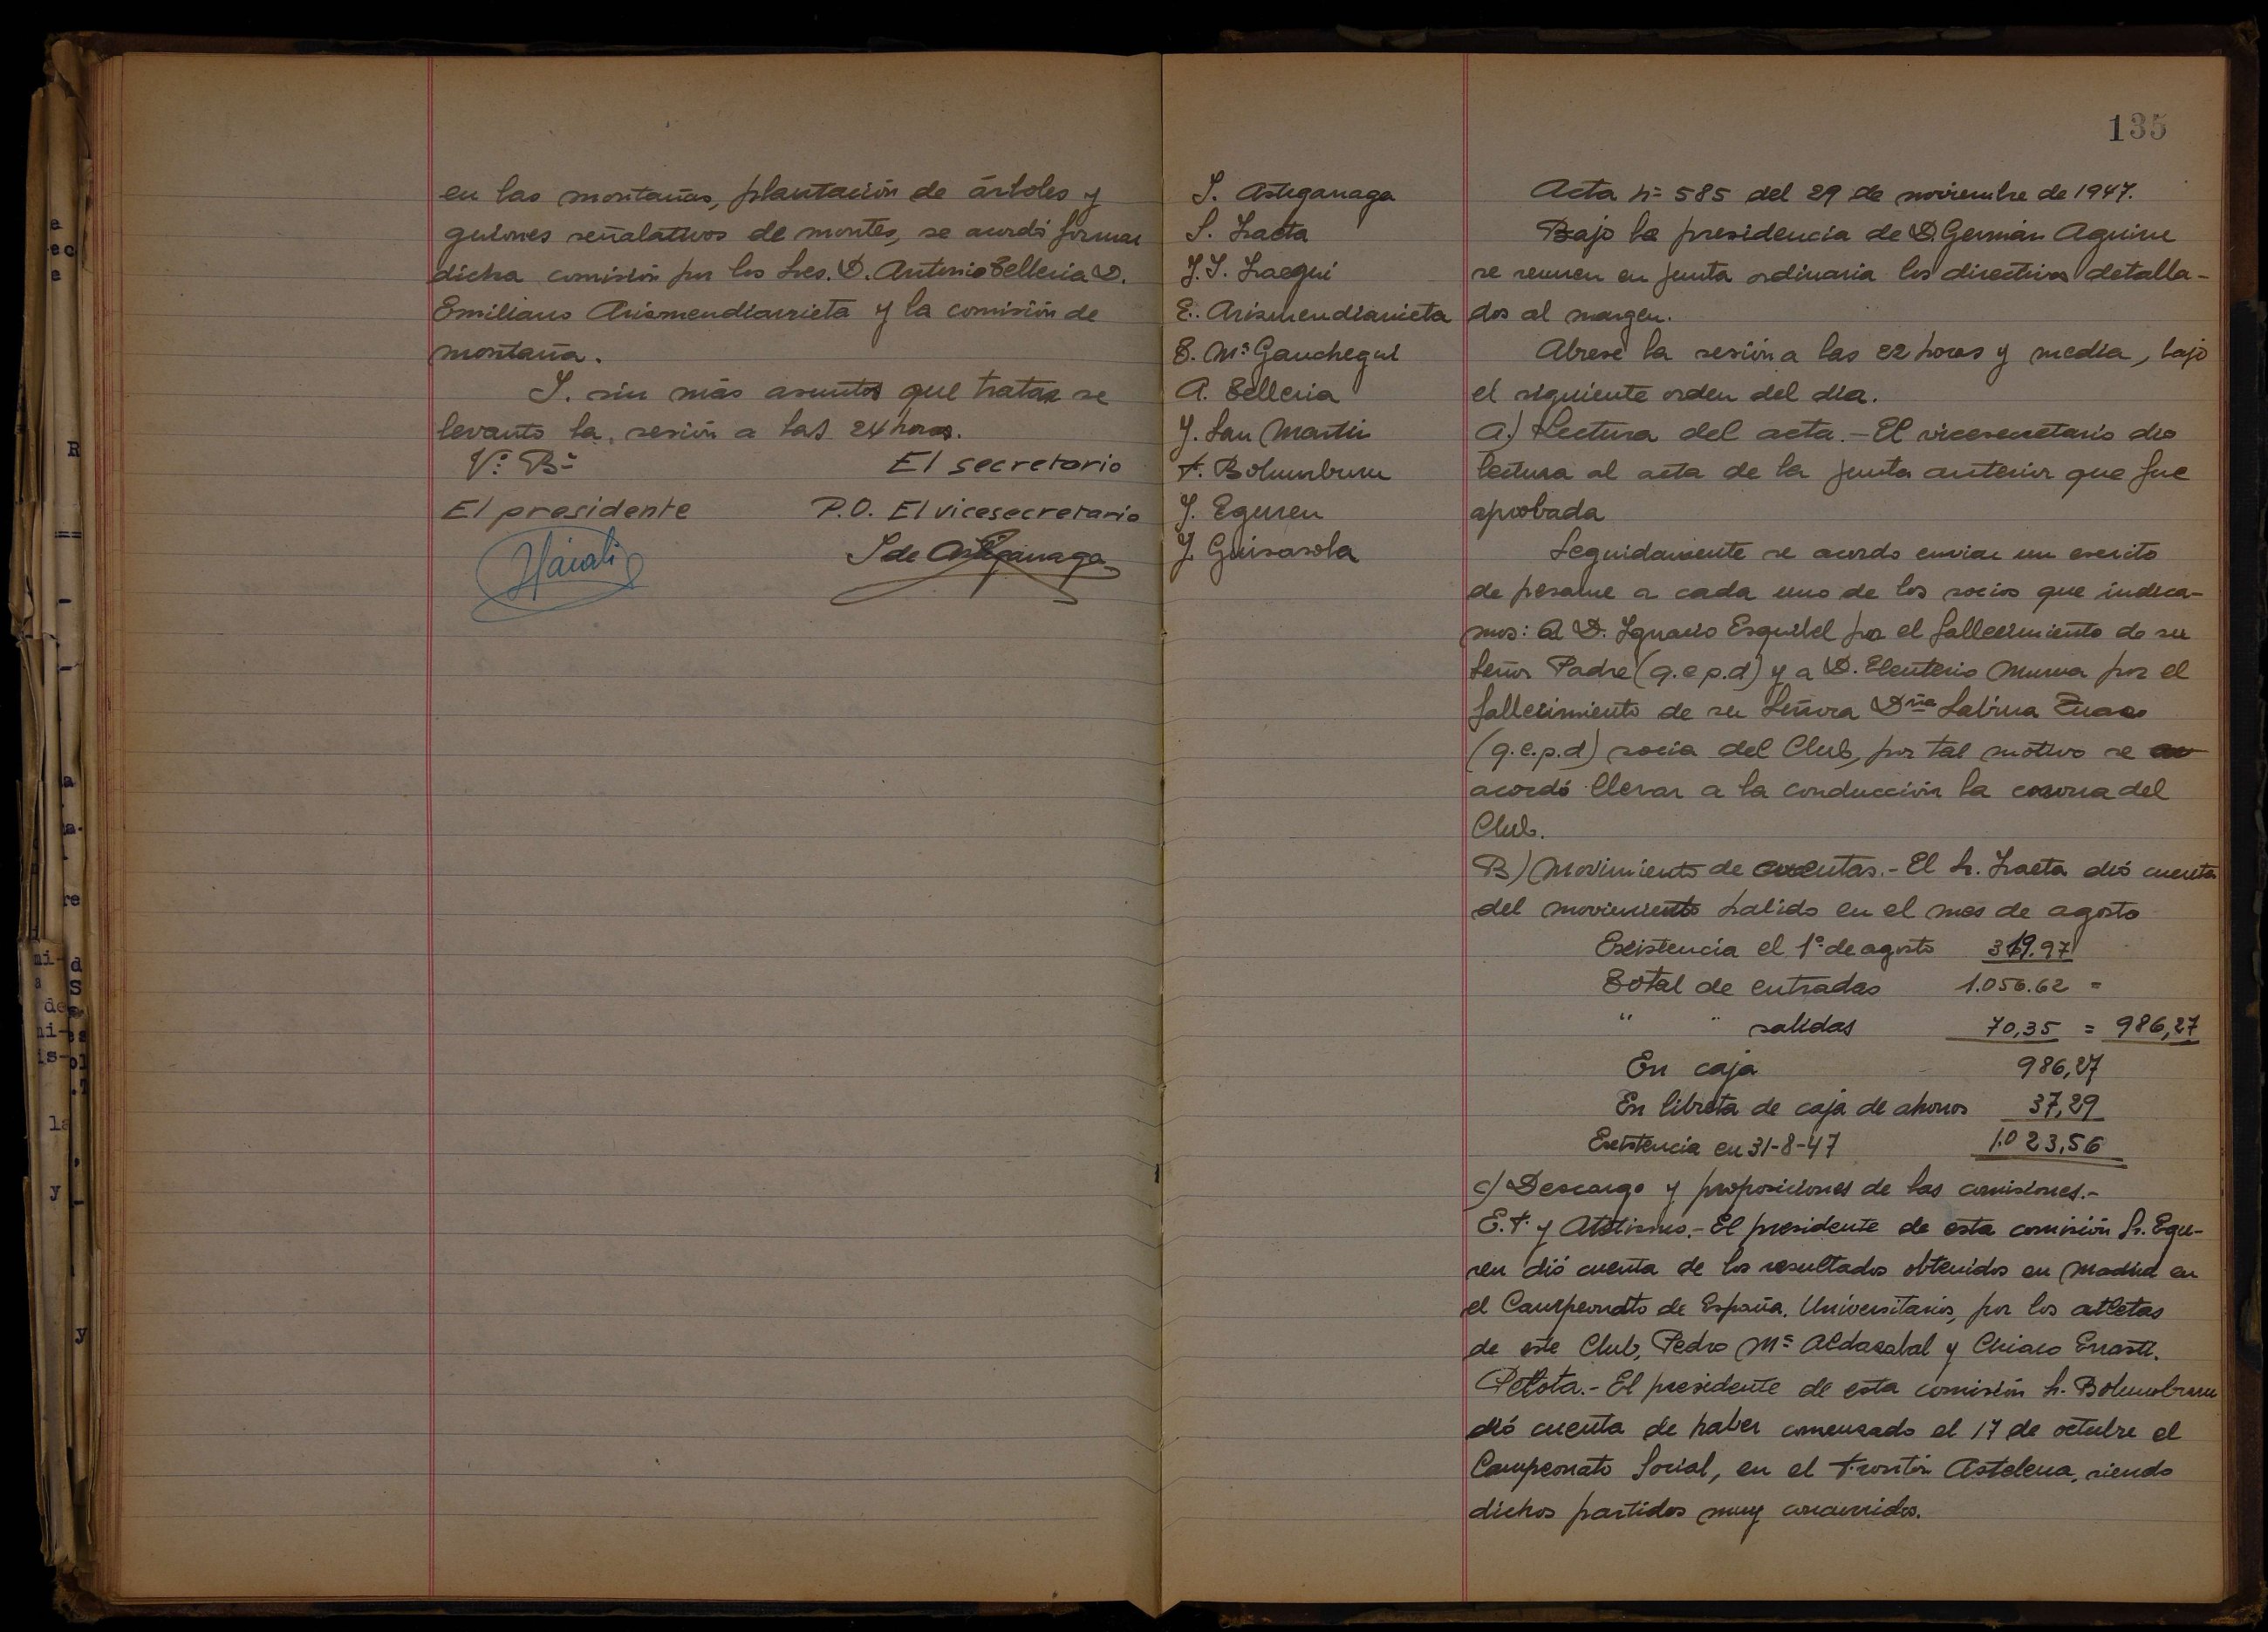 en las montañas, plantación de árboles y
guiones señalativos de montes, se acordó formar
dicha comisión por los Sres. D. Antonio Telleria D.
Emiliano Arismendiarrieta y la comisión de
montaña.
Y. sin más asuntos que tratar se
levanto la, sesión a las 24 horas.
Vº Bº
El secretario
El presidente
P.O. El vicesecretario
S de Astiganaga
135
S. Astiganaga
S. Lacta
J.I. Loegui
E. Arismendiarrieta
T. Mª Gauchegui
A. Telleria
J. San Martin
F. Bolumburu
J. Eguren
J. Guisasola
Acta nº 585 del 29 de noviembre de 1947.
Bajo la presidencia de D. Germán Aguirre
se reunen en junta ordinaria los directivos detalla-
dos al margen.
Abrese la sesión a las 22 horas y media, bajo
el siguiente orden del dia.
A.) Lectura del acta.- El vicesecretario dio
lectura al acta de la junta anterior que fue
aprobada
Seguidamente se acordo enviar un escrito
de pesame a cada uno de los socios que indica-
mos: A D. Ignacio Esquibel por el fallecimiento de su
Señor Padre (q.e.p.d) y a D. Eleuterio Murua por el
fallecimiento de su Señora Dña Sabina
(q.e.p.d) socia del Club, por tal motivo se
acordó llevar a la conducción la corona del
Club.
B) Movimiento de cuentas.- El Sr. Lacta dió cuenta
del movimiento habido en el mes de agosto
Existencia el 1º de agosto 319.97
Total de entradas 1.056.62 =
" " salidas 70,35 = 986,27
En caja 986,27
En libreta de caja de ahorros 37,29
Existencia en 31-8-47 1.023,56
C) Descargo y proposiciones de las comisiones.-
E.F. y Atletismo.- El presidente de esta comisión Sr. Egu-
ren dió cuenta de los resultados obtenidos en Madrid en
el Campeonato de España. Universitarios, por los atletas
de este Club, Pedro Mª Aldazabal y Ciriaco Errasti.
Pelota.- El presidente de esta comisión Sr. Bolumburu
dió cuenta de haber comenzado el 17 de octubre el
Campeonato Social, en el Frontón Astelena, siendo
dichos partidos muy concurridos.